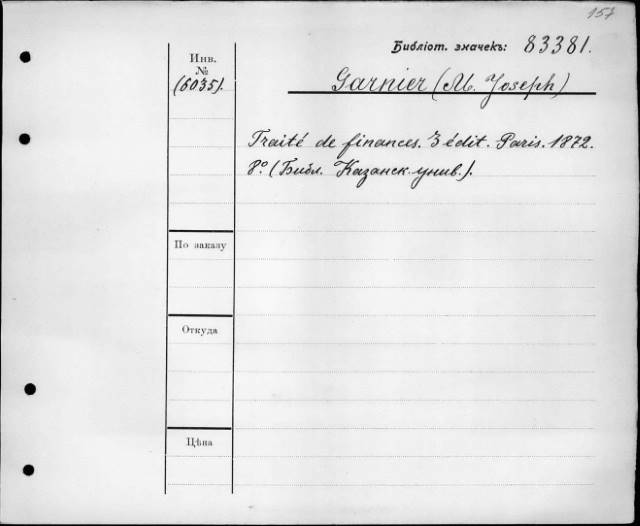 157
Библіот. значекъ: 83381.
Инв.
№
(6035).
Garnier (M. Joseph)
Traité de finances. 3 édit. Paris. 1872.
8º. (Библ. Казанск. унив.).
По заказу
Откуда
Цѣна